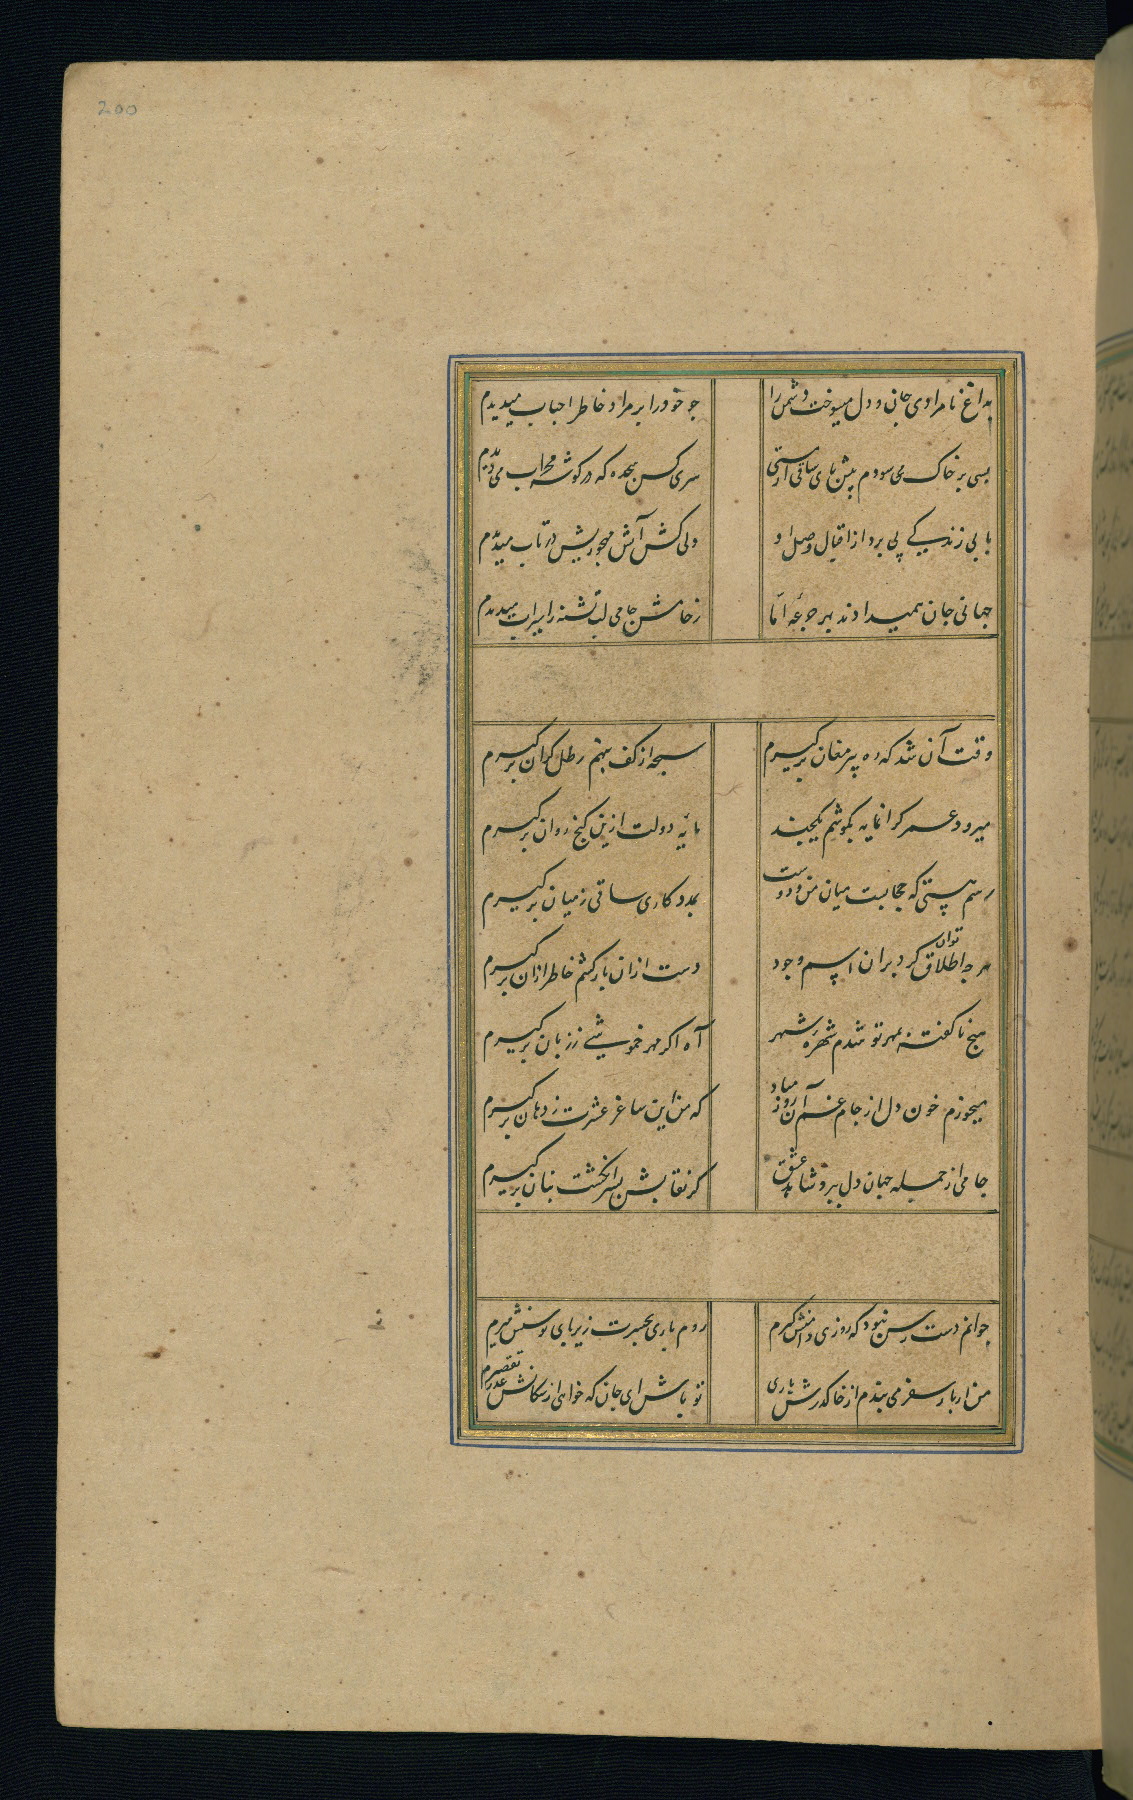 200
بداغ نامرادی جانی و دل میسوخت دشمن را
چو خود را بر مراد خاطر احباب میدیدم
بسی بر خاک می سودم پیش پای ساقی از مستی
سری کس سجده که در گوشه محراب می دیدم
پی برد از اقبال وصل او
ولی کش آتش مهجوریش در تاب میدیدم
جهانی جان همیدادند بهر جرعه اما
ز جامش جامی لب تشنه را سیراب میدیدم
وقت آن شد که ره پیر مغان برگیرم
سبحه از کف بنهم رطل گران برگیرم
میرود عمر گرانمایه بکوشم یکچند
مایه دولت ازین گنج روان برگیرم
رسم هستی که حجابست میان من و دوست
بمددکاری ساقی ز میان برگیرم
هر چه اطلاق توان کرد بران اسم وجود
دست ازان بازکشم خاطر ازان برگیرم
هیچ ناگفته بمهر تو شدم شهره شهر
آه اگر مهر خموشی ز زبان برگیرم
میخورم خون دل از جام غم آن روز مباد
که من این ساغر عشرت ز دهان برگیرم
جامی از جمله جهان دل ببرد شاهد عشق
گر نقابش بسر انگشت بنان برگیرم
چو انم دست رس نبود که روزی دامنش گیرم
روم باری بحسرت زیر پای توسنش میرم
من ار بار سفر می بندم از خاک درش باری
تو باش ای جان که خواهی از سگانش عذر تقصیرم